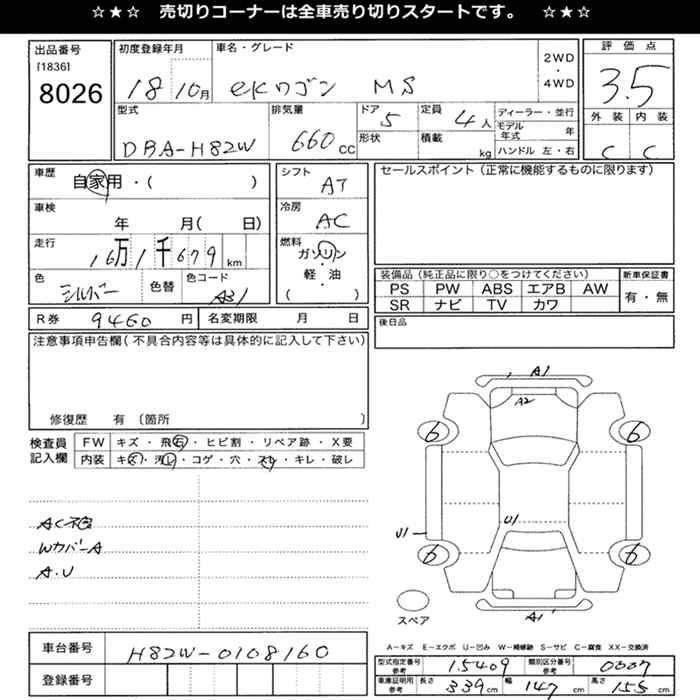 ☆★☆ 売切りコーナーは全車売り切りスタートです。 ☆★☆
出品番号
[1836]
8026
初度登録年月
18 10月
車名・グレード
eKワゴン MS
2WD
・
4WD
評価点
3.5
外装 内装
C C
型式
DBA-H82W
排気量
660cc
ドア
5
形状
定員
4人
積載
kg
ディーラー・並行
モデル年式 年
ハンドル 左・右
車歴
自家用・( )
車検
年 月( 日)
走行
16万1千679km
色
シルバー
色替
色コード
A31
シフト
AT
冷房
AC
燃料
ガソリン
・
軽・油
( )
セールスポイント(正常に機能するものに限ります)
装備品(純正品に限り○をつけてください)
PS PW ABS エアB AW
SR ナビ TV カワ
新車保証書
有・無
R券 9460円
名変期限 月 日
後日品
注意事項申告欄(不具合内容等は具体的に記入して下さい)
修復歴 有 〔箇所 〕
検査員記入欄
FW キズ・飛石・ヒビ割・リペア跡・X要
内装 キズ・汚レ・コゲ・穴・スレ・キレ・破レ
WカバーA
A.U
A1
A2
6 6
U1 U1
6 6
A1
スペア
A−キズ E−エクボ U−凹み W−補修跡 S−サビ C−腐食 XX−交換済
車台番号 H82W-0108160
登録番号
型式指定番号 参考 15409
類別区分番号 参考 0007
車庫証明用 参考 長さ 339cm 幅 147cm 高さ 155cm